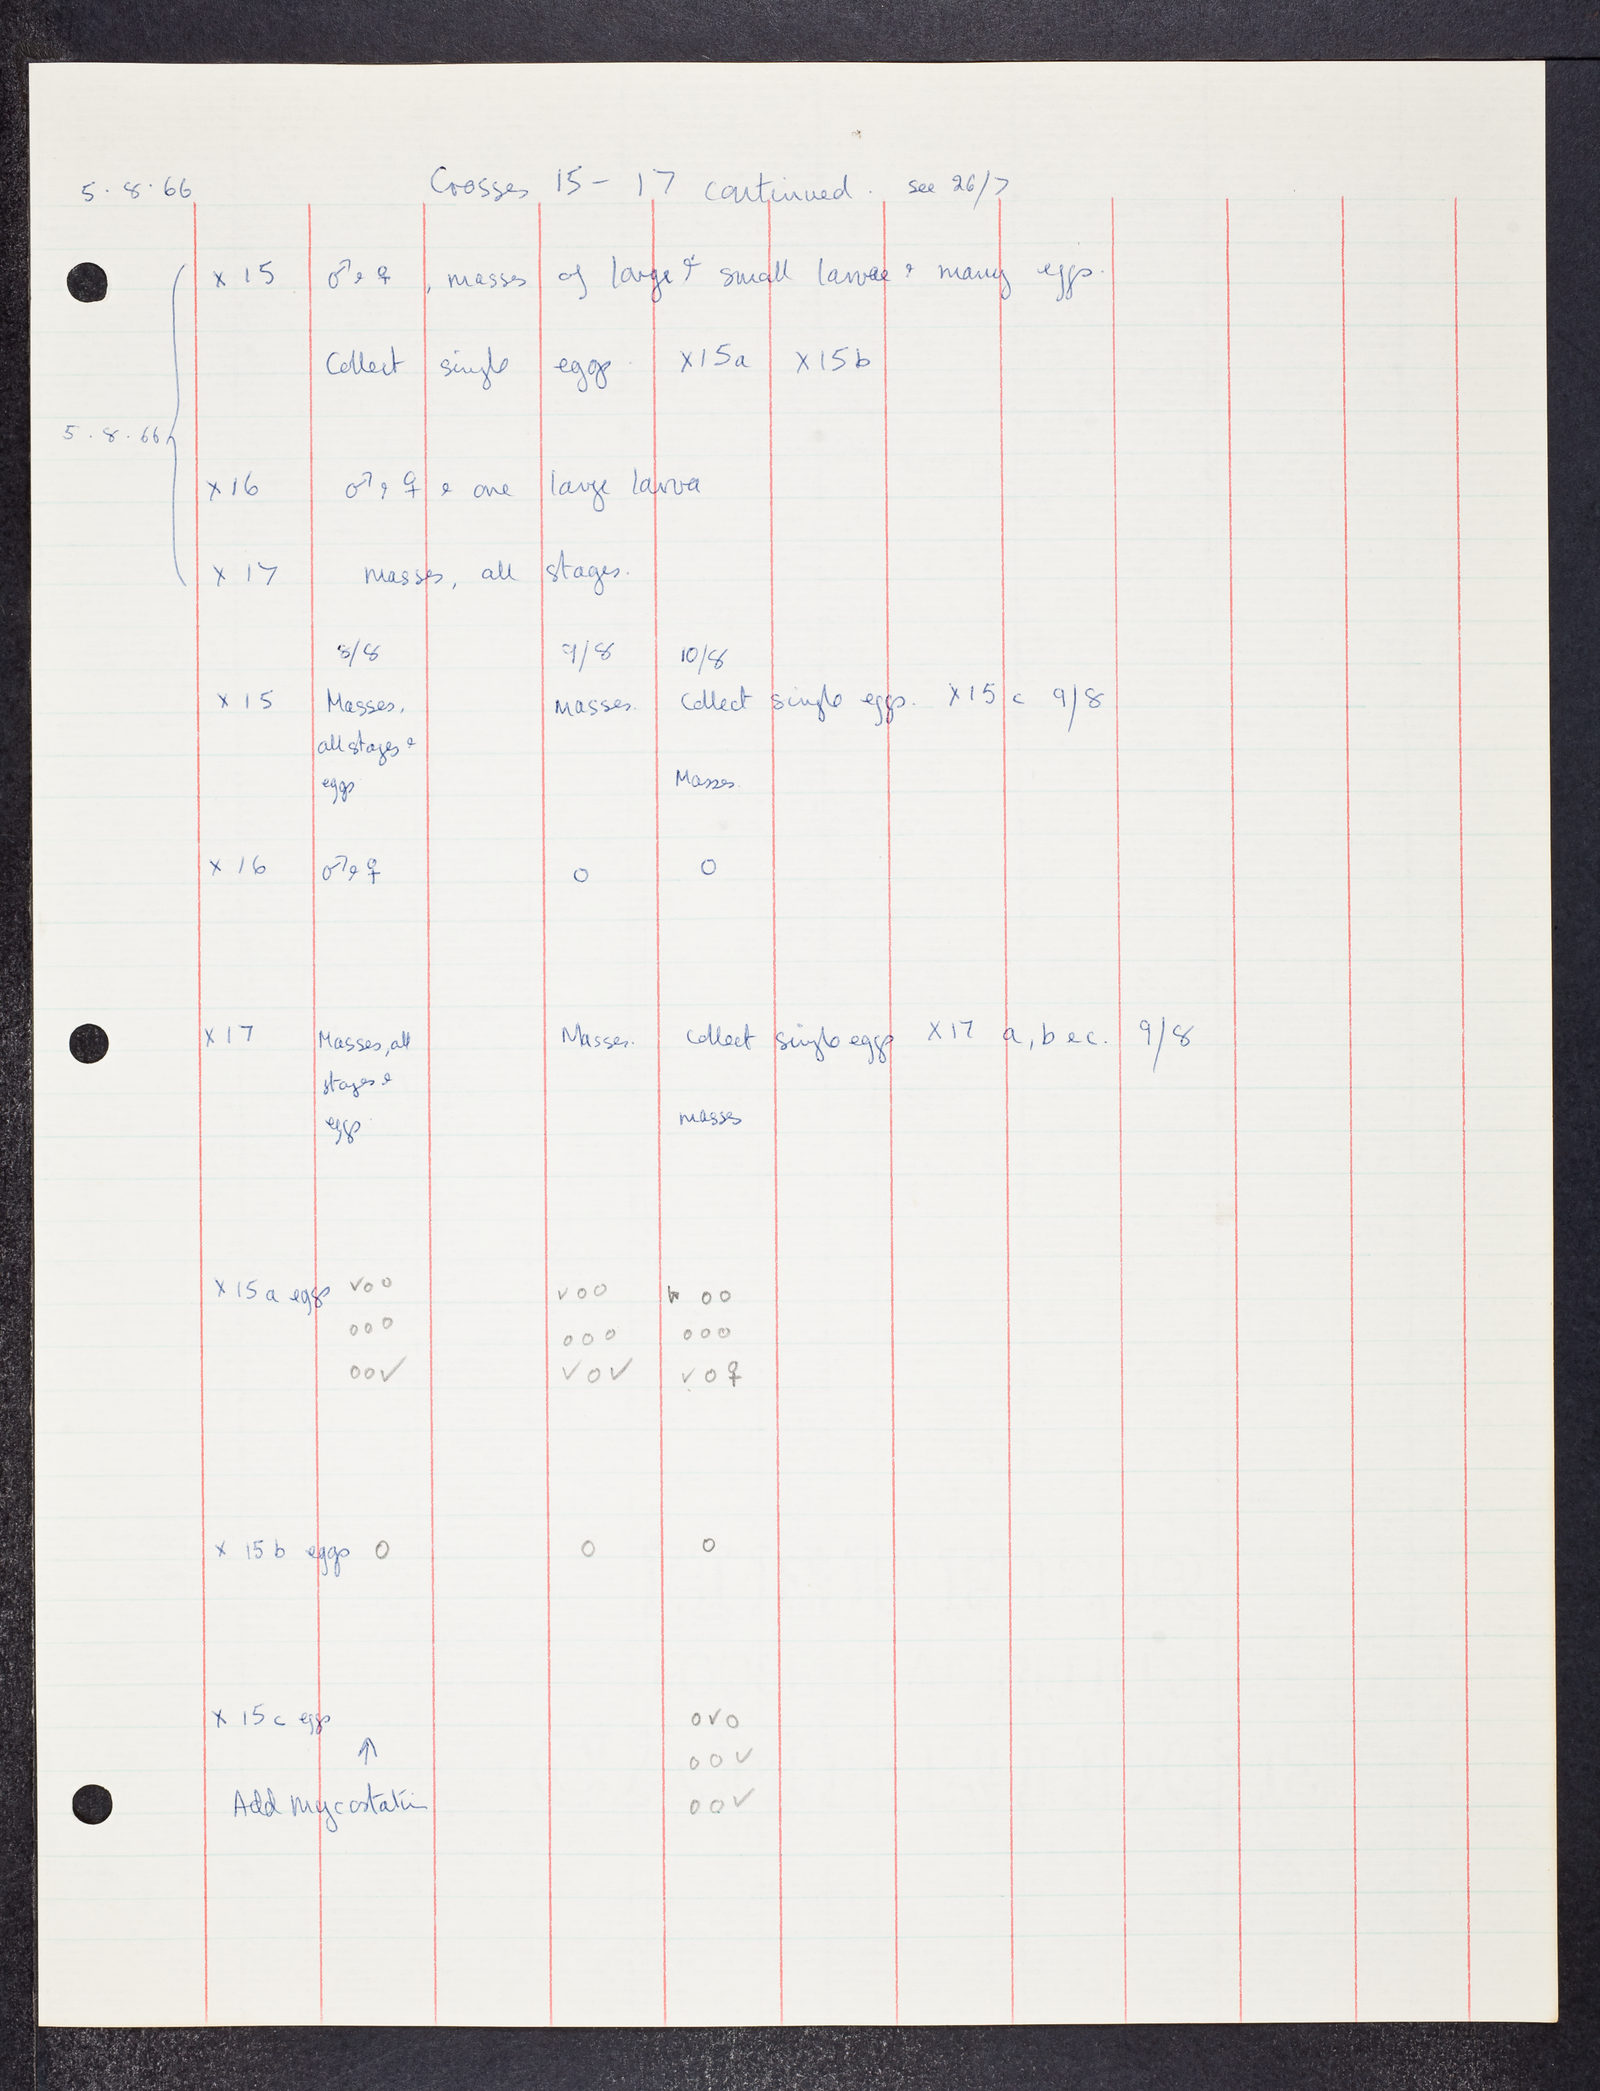 5.8.66 Crosses 15-17 continued. see 26/7
x 15 ♂ & ♀, masses of large & small larvae & many eggs.
Collect single eggs. X15a X15b
5.8.66
x 16 ♂ & ♀ & one large larva
x 17 masses, all stages.
8/8 9/8 10/8
x 15 Masses, masses. Collect single eggs. X15 c 9/8
all stages &
eggs Masses.
x 16 ♂ & ♀ o o
x 17 Masses, all Masses. Collect single eggs X17 a, b & c. 9/8
stages &
eggs masses
x 15 a eggs ✓oo ✓oo oo
ooo ooo ooo
oo✓ ✓o✓ ✓o♀
x 15 b eggs o o o
x 15 c eggs o✓o
↑ oo✓
Add mycostatin oo✓